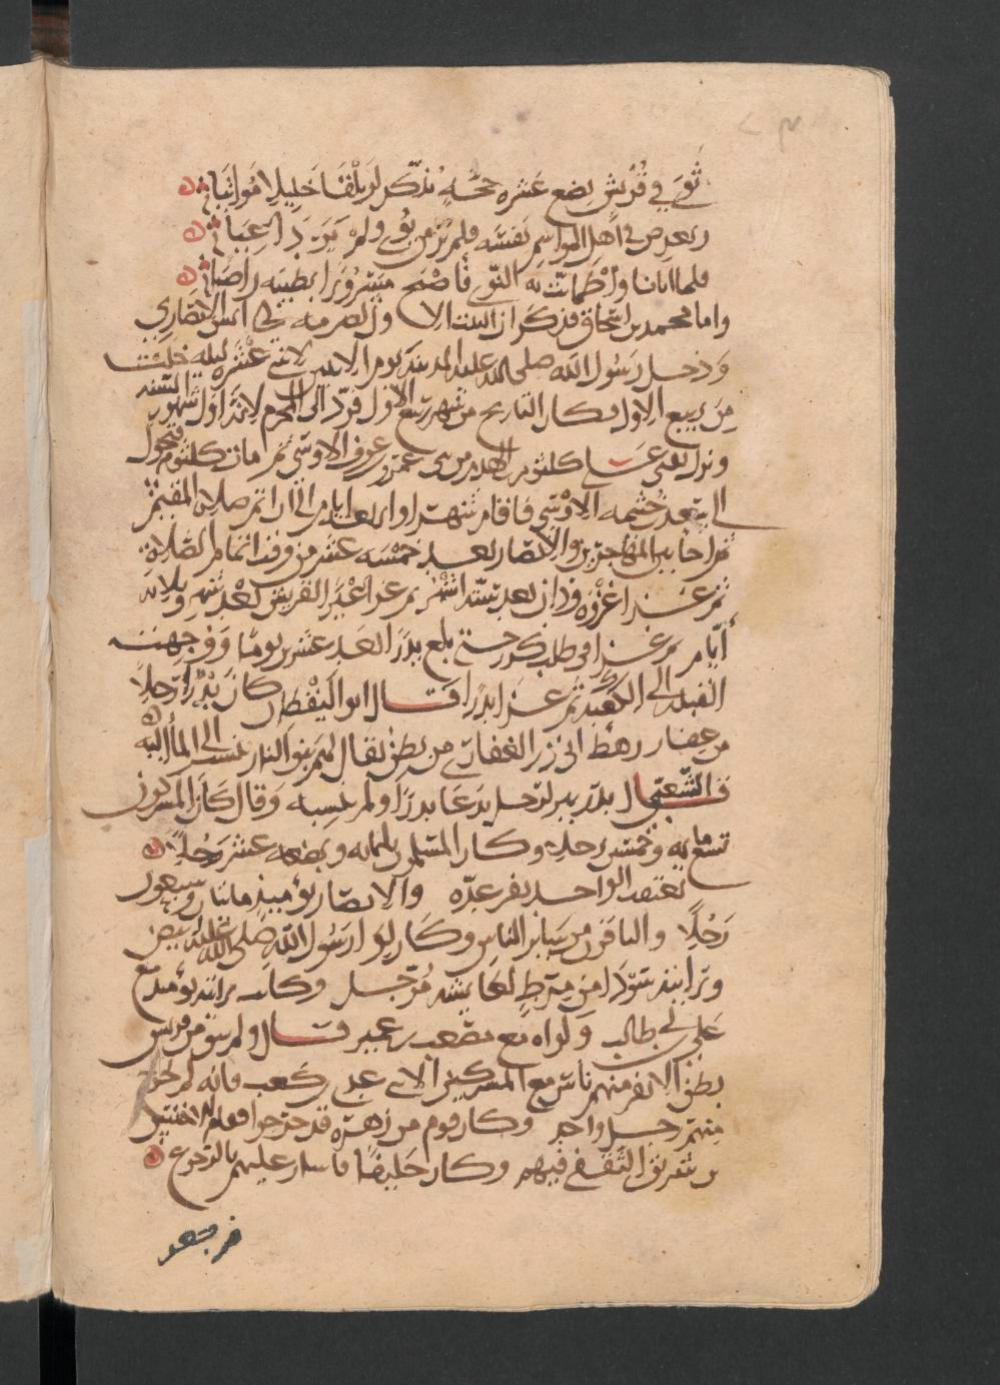 ثوى في قريش بضع عشره حجه يذكر لو يلقا خليلا مواتيا
ويعرض في اهل المواسم نفسه فلم ير من يؤي ولم ير داعيا
فلما اتانا واطمانت به النوى فاصبح مسرورا بطيبه راضيا
واما محمد بن اسحاق فذكر ان البيت الاول لصرمه بن ابي انس الانصاري
ودخل رسول الله صلى الله عليه المدينه يوم الاثنين لاثنتي عشره ليله خلت
من ربيع الاول فكان التاريخ من شهر ربيع الاول فرد الى المحرم لانه اول شهور السنه
ونزل على كلثوم بن الهدم من بني عمرو بن عوف الاوسي ثم مات كلثوم فتحول
الى سعد بن خيثمه الاوسي فاقام شهرا واربعه ايام الى ان اتم صلاه المقيم
ثم اخا بين المهاجرين والانصار بعد خمسه عشر من وقت اتمام الصلاة
ثم غزا غزوه ودان بعد سته اشهر ثم غزا عير القريش بعد شهر وثلاثه
ايام ثم غزا في طلب كرز حتى بلغ بدرا لعد عشرين يوما ووجهت
القبله الى الكعبه ثم غزا بدرا قال ابو اليقظان كان بدر رجلا
من غفار رهط ابي ذر الغفاري من بطن يقال لهم بنو النار نسب الى الماء اليه
قال الشعبي بدر بير لرجل يدعا بدرا ولم ينسبه وقال كان المشركون
تسعمايه وخمسين رجلا وكان المسلمون ثلثمايه وبضعه عشر رجلا
يعتقب الواحد نفر عده والانصار يوميذ مائتان وسبعون
رجلا والباقون من ساير الناس وكان لوا رسول الله صلى الله عليه ابيض
ورايته سودا من مرط لعايشه مرجل وكانت رايته يوميذ مع
علي بن ابي طالب ولواه مع مصعب بن عمير قال ولم يبق من قريش
بطن الا نفر منهم ناس مع المشركين الا بني عدي بن كعب فانه لم يخرج
منهم رجل واحد وكان قوم من زهره قد خرجوا فقام الاخنس
بن شريق الثقفي فيهم وكان حليفا فاشار عليهم بالرجوع
فرجعو